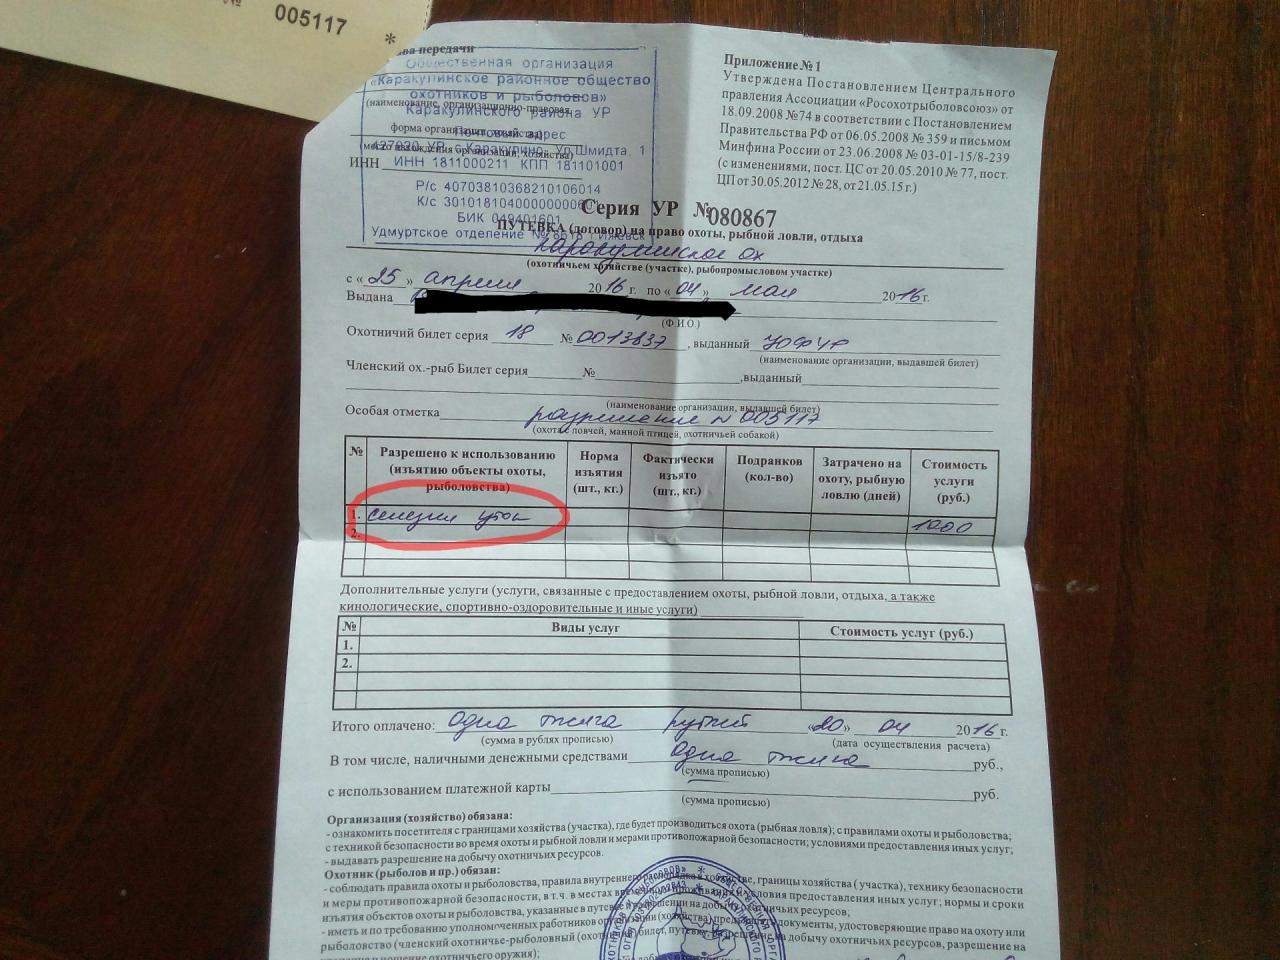 № 005117
*
ва передачи
Общественная организация
«Каракулинское районное общество
охотников и рыболовов»
(наименование, организационно-правовая
Каракулинского района УР
форма организации
Почтовый адрес
427920 УР, с Каракулино, Ул.Шмидта, 1
(место нахождения организации, хозяйства)
ИНН ИНН 1811000211 КПП 181101001
Р/с 40703810368210106014
К/с
БИК 049401601
Удмуртское отделение № 8618 г Ижевск
Приложение № 1
Утверждена Постановлением Центрального
правления Ассоциации «Росохотрыболовсоюз» от
18.09.2008 №74 в соответствии с Постановлением
Правительства РФ от 06.05.2008 № 359 и письмом
Минфина России от 23.06.2008 № 03-01-15/8-239
(с изменениями, пост. ЦС от 20.05.2010 № 77, пост.
ЦП от 30.05.2012 № 28, от 21.05.15 г.)
Серия УР № 080867
ПУТЕВКА (договор) на право охоты, рыбной ловли, отдыха
Каракулинское ох
(охотничьем хозяйстве (участке), рыбопромысловом участке)
с « 25 » апреля 2016 г. по « 04 » мая 2016 г.
Выдана
(Ф.И.О.)
Охотничий билет серия 18 № 0013837, выданный УОФ УР
(наименование организации, выдавшей билет)
Членский ох.-рыб Билет серия № ,выданный
(наименование организации, выдавшей билет)
Особая отметка разрешение N 005117
(охота с ловчей, манной птицей, охотничьей собакой)
№ Разрешено к использованию (изъятию объекты охоты, рыболовства) Норма изъятия (шт., кг.) Фактически изъято (шт., кг.) Подранков (кол-во) Затрачено на охоту, рыбную ловлю (дней) Стоимость услуги (руб.)
1. селезни уток 1000
2.
Дополнительные услуги (услуги, связанные с предоставлением охоты, рыбной ловли, отдыха, а также
кинологические, спортивно-оздоровительные и иные услуги)
№ Виды услуг Стоимость услуг (руб.)
1.
2.
Итого оплачено: Одна тысяча рублей «20» 04 2016 г.
(сумма в рублях прописью) (дата осуществления расчета)
В том числе, наличными денежными средствами Одна тысяча руб.,
(сумма прописью)
с использованием платежной карты руб.
(сумма прописью)
Организация (хозяйство) обязана:
- ознакомить посетителя с границами хозяйства (участка), где будет производиться охота (рыбная ловля); с правилами охоты и рыболовства;
с техникой безопасности во время охоты и рыбной ловли и мерами противопожарной безопасности; условиями предоставления иных услуг;
- выдавать разрешение на добычу охотничьих ресурсов.
Охотник (рыболов и пр.) обязан:
- соблюдать правила охоты и рыболовства, правила внутреннего распорядка в хозяйстве, границы хозяйства (участка), технику безопасности
и меры противопожарной безопасности, в т.ч. в местах временного проживания и условия предоставления иных услуг; нормы и сроки
изъятия объектов охоты и рыболовства, указанные в путевке и разрешении на добычу охотничьих ресурсов;
- иметь и по требованию уполномоченных работников организации (хозяйства) документы, удостоверяющие право на охоту или
рыболовство (членский охотничье-рыболовный (охотничий) билет, путевку, разрешение на добычу охотничьих ресурсов, разрешение на
ношение охотничьего оружия);